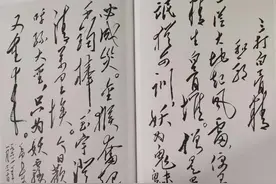 三打白骨精
一从大地起風雷，便有
精生白骨堆。僧是愚
氓犹可训，妖为鬼蜮
必成災。金猴奮起
千鈞棒，玉宇澄
清萬里埃。今日歡
呼孫大聖，只为妖霧
又重来。